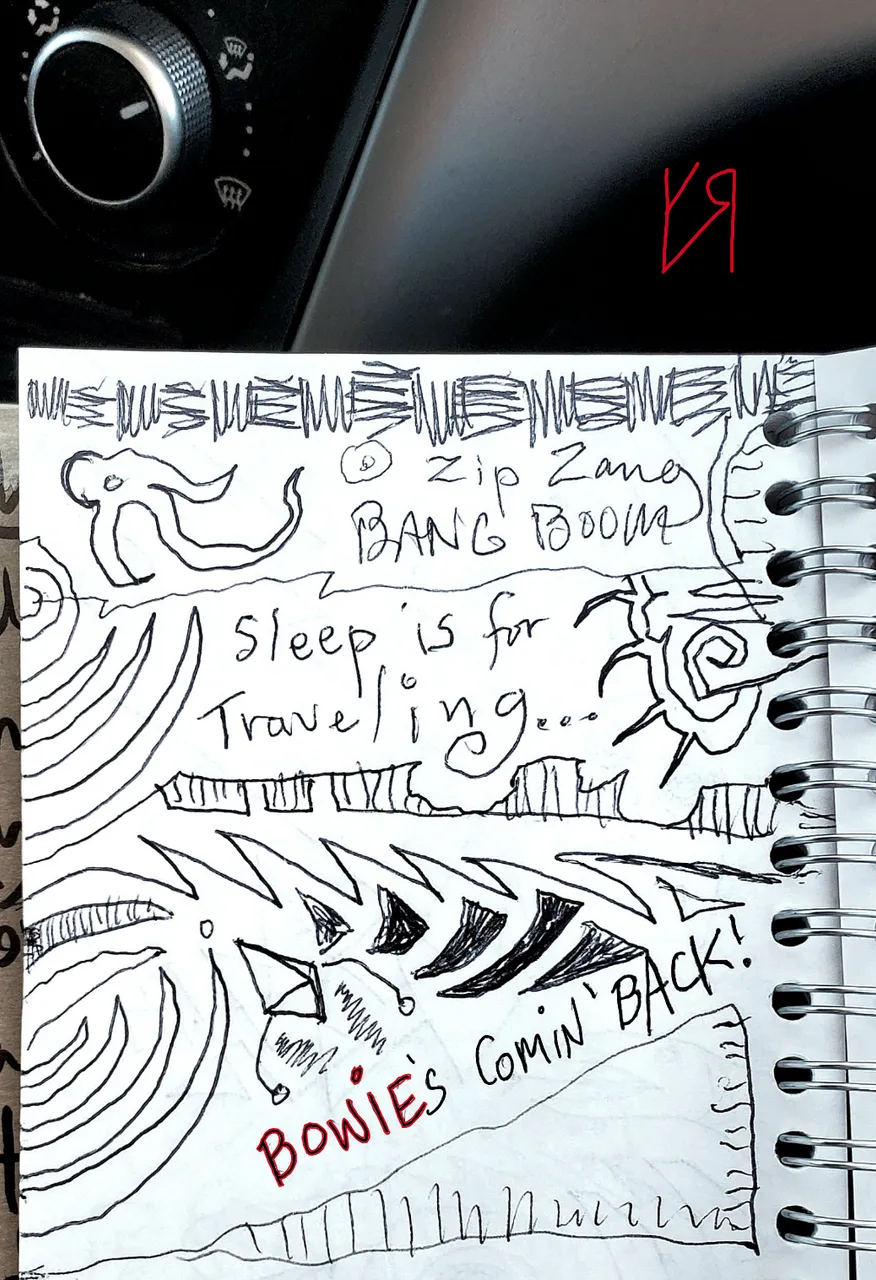 Zip Zang
BANG BOOM
Sleep is for
Traveling...
BOWIE's Comin' BACK!